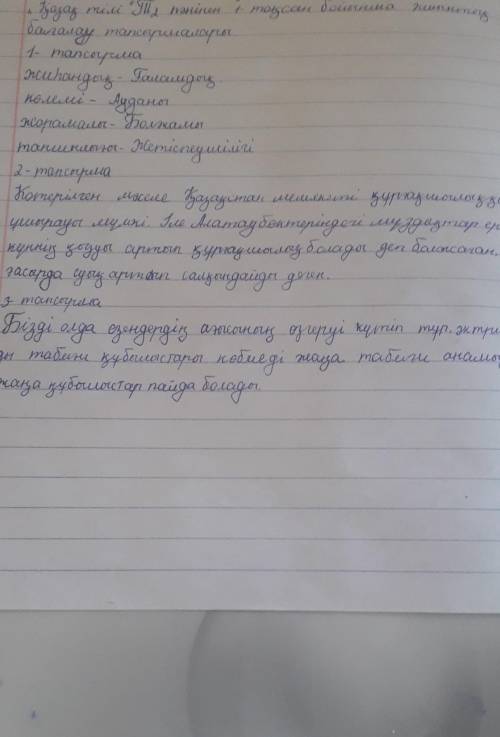 Қазақ тілі Т2 пәнінен 1 тоқсан бойынша жиынтық
бағалау тапсырмалары
1- тапсырма
жиһандық - Ғаламдық
көлемі - Ауданы
жорамалы - Болжамы
тапшылығы - Жетіспеушілігі
2- тапсырма
Көтерілген мәселе Қазақстан мемлекеті құрғақшылық
ұшырауы мүмкі. Іле Алатау бөктеріндегі мұздақтар
күннің қоды артып құрғақшылық болады деп болжаған.
ғасырда суық артып салқындайды деген.
3 тапсырма
Бізді алда өзендердің ағысының өзгеруі күтіп тұр.
ды табиғи құбылыстары көбиеді жаңа табиғи
жаңа құбылыстар пайда болады.